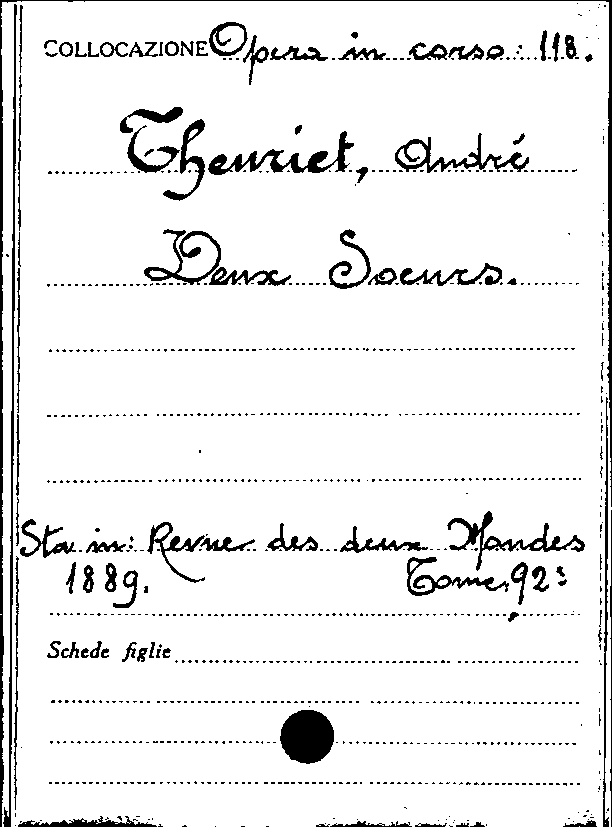 COLLOCAZIONE Opera in corso: 118.
Theuriet, André
Deux Soeurs.
Sta in: Revue des deux Mondes
1889. Tome 92:
Schede figlie